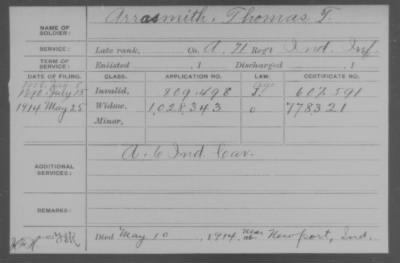 NAME OF SOLDIER: Arrasmith, Thomas F.
SERVICE: Late rank, Co. A, 71 Reg't Ind. Inf.
TERM OF SERVICE: Enlisted , 1 Discharged , 1
DATE OF FILING. CLASS. APPLICATION NO. LAW. CERTIFICATE NO.
1890 July 18 Invalid, 809.498 607.591
1914 May 25 Widow, 1,028,343 778321
Minor,
ADDITIONAL SERVICES: A. 6 Ind. Cav.
REMARKS:
Died May 10, 1914, near Newport, Ind.